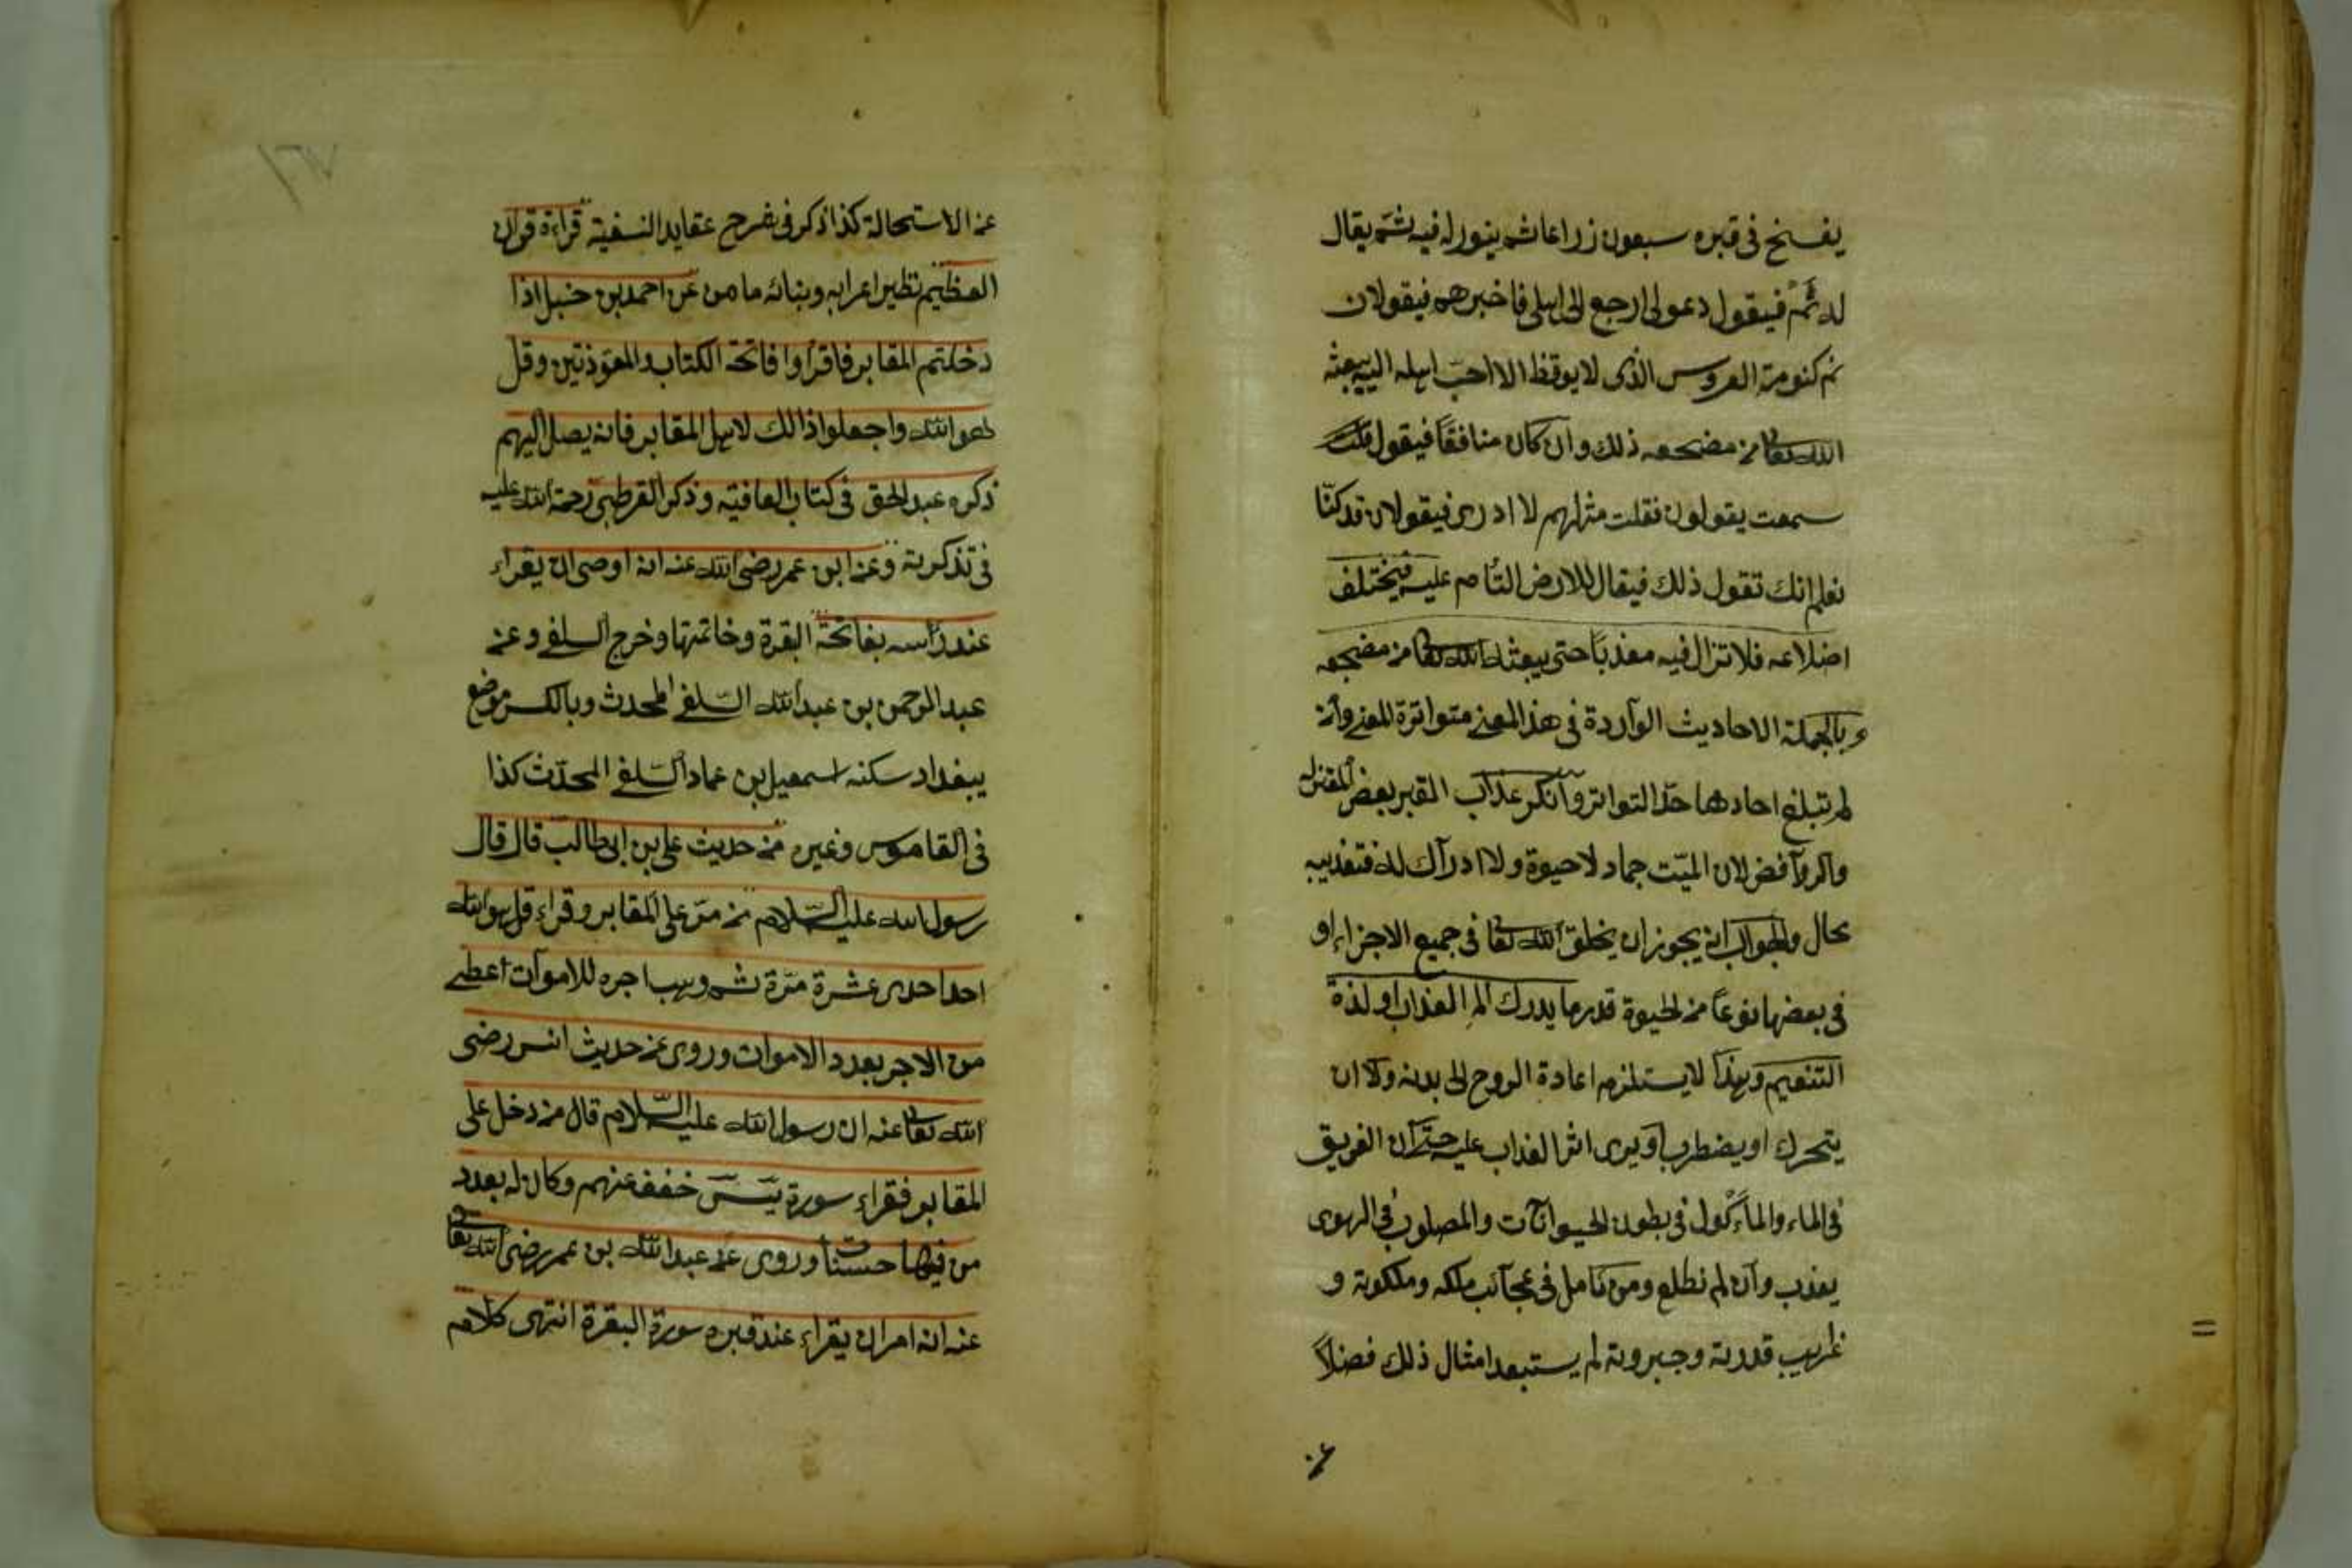 يفسخ فى قبره سبعون زراعا ثم ينور له فيه ثم يقال
له نم فيقول دعونى ارجع الى اهلى فاخبرهم فيقولان
نم كنومة العروس الذى لا يوقظ الا احب اهله اليه يبعثه
الله تعا من مضجعه ذلك وان كان منافقا فيقول
سمعت يقولون فقلت مثلهم لا ادرى فيقولان قد كنا
نعلم انك تقول ذلك فيقال للارض التأمى عليه فيختلف
اضلاعه فلا تزال فيه معذبا حتى يبعثه الله تعا من مضجعه
وبالجملة الاحاديث الواردة فى هذ المعنى متواترة المعنى وان
لم تبلغ احادها حد التواتر وانكر عذاب القبر بعض المعتزله
والروافض لان الميت جماد لا حيوة ولا ادراك له فتعذيبه
محال والجواب انه يجوز ان يخلق الله تعا فى جميع الاجزاء او
فى بعضها نوعا من الحيوة قدر ما يدرك الم العذاب او لذة
التنعيم وبهذا لا يستلزم اعادة الروح الى بدنه ولا ان
يتحرك او يضطرب او يرى اثر العذاب عليه حتى ان الغريق
فى الماء والمأكول فى بطون الحيوانات والمصلوب فى الهوى
يعذب وان لم نطلع ومن تامل فى عجائب ملكه وملكوته و
غرايب قدرته وجبروته لم يستبعد امثال ذلك فضلا
عن
١٦٧
عن الاستحالة كذا ذكر فى شرح عقايد النسفية قراءة قران
العظيم نظير اعرابه وبنائه ما من عن احمد بن حنبل اذا
دخلتم المقابر فاقرأوا فاتحة الكتاب والمعوذتين وقل
هو الله واجعلوا ذالك لاهل المقابر فانه يصل اليهم
ذكره عبد الحق فى كتاب العافيه وذكر القرطبى رحمة الله عليه
فى تذكرته وعن ابن عمر رضى الله عنه انه اوصى ان يقراء
عند رأسه بفاتحة البقرة وخاتمتها وخرج السلفى وعن
عبد الرحمن بن عبد الله السلفى المحدث وبالكسر موضع
ببغداد سكنه اسمعيل بن عماد السلفى المحدث كذا
فى القاموس وغيره من حديث على بن ابى طالب قال قال
رسول الله عليه السلام من مر على المقابر وقراء قل هو الله
احد احدى عشرة مرة ثم وهب اجره للاموات اعطى
من الاجر بعدد الاموات وروى عن حديث انس رضى
الله تعا عنه ان رسول الله عليه السلام قال من دخل على
المقابر فقراء سورة يس خفف عنهم وكان له بعدد
من فيها حسنات وروى عن عبد الله بن عمر رضى الله تعا
عنه انه امر ان يقراء عند قبره سورة البقرة انتهى كلامه